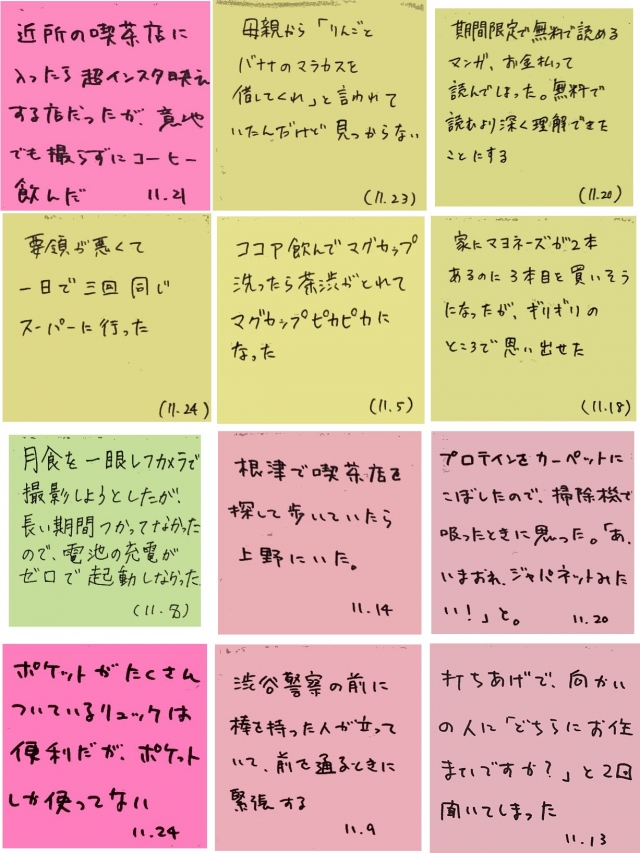 近所の喫茶店に
入ったら超インスタ映え
する店だったが、意地
でも撮らずにコーヒー
飲んだ
11.21
母親から「りんごと
バナナのマラカスを
借してくれ」と言われて
いたんだけど見つからない
(11.23)
期間限定で無料で読める
マンガ、お金払って
読んでしまった。無料で
読むより深く理解できた
ことにする
(11.20)
要領が悪くて
一日で三回同じ
スーパーに行った
(11.24)
ココア飲んでマグカップ
洗ったら茶渋がとれて
マグカップピカピカに
なった
(11.5)
家にマヨネーズが2本
あるのに3本目を買いそう
になったが、ギリギリの
ところで思い出せた
(11.18)
月食を一眼レフカメラで
撮影しようとしたが、
長い期間つかってなかった
ので、電池の充電が
ゼロで起動しなかった
(11.8)
根津で喫茶店を
探して歩いていたら
上野にいた。
11.14
プロテインをカーペットに
こぼしたので、掃除機で
吸ったときに思った。「あ、
いまおれ、ジャパネットみた
い!」と。
11.20
ポケットがたくさん
ついているリュックは
便利だが、ポケット
しか使ってない
11.24
渋谷警察の前に
棒を持った人が立って
いて、前を通るときに
緊張する
11.9
打ちあげで、向かい
の人に「どちらにお住
まいですか?」と2回
聞いてしまった
11.13